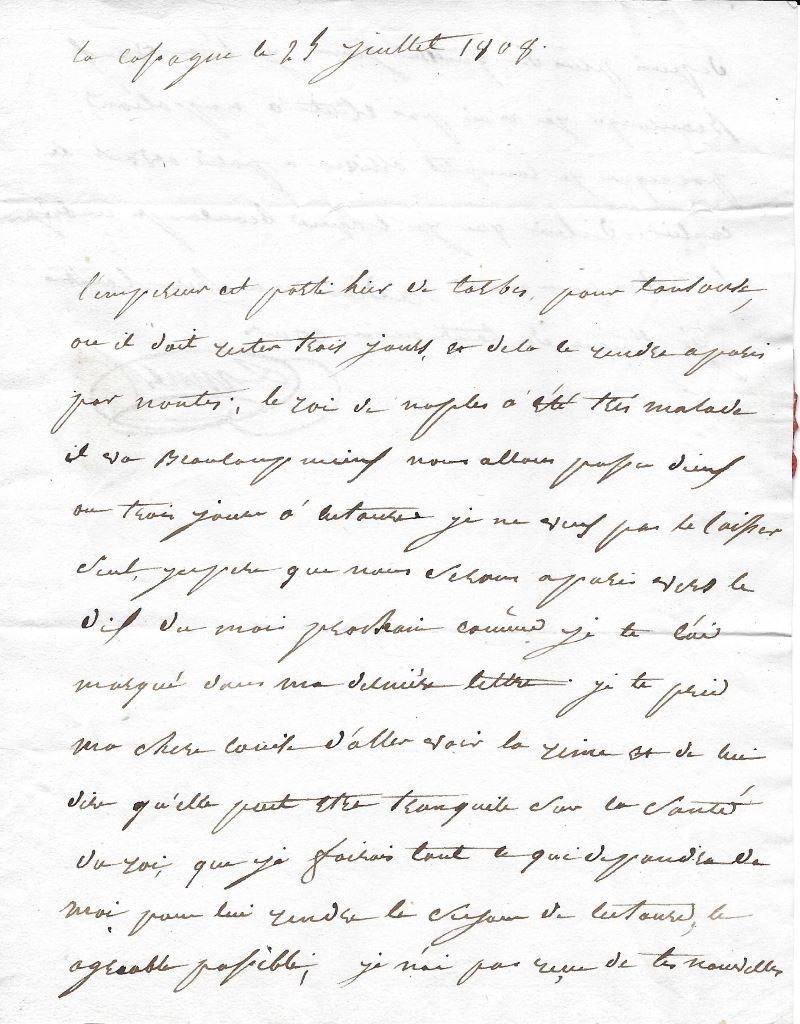 la cassagne le 25 juillet 1808.
l'empereur est parti hier de tarbes, pour toulouse,
ou il doit rester trois jours, et dela se rendre a paris
par nantes; le roi de naples á été trés malade
il va Beaucoup mieux nous allons passer dieux
ou trois jours á lectoure je ne veux pas le laisser
seul, jespere que nous serons a paris vers le
dix du mois prochain comme je te lái
marqué dans ma derniére lettre. je te prie
ma chere louise d'aller voir la reine et de lui
dire qu'elle peut etre tranquile sur la santé
du roi, que je fairais tout ce qui dependra de
moi pour lui rendre le sejour de lectoure, le
agreable possible; je n'ai pas reçu de tes nouvelles